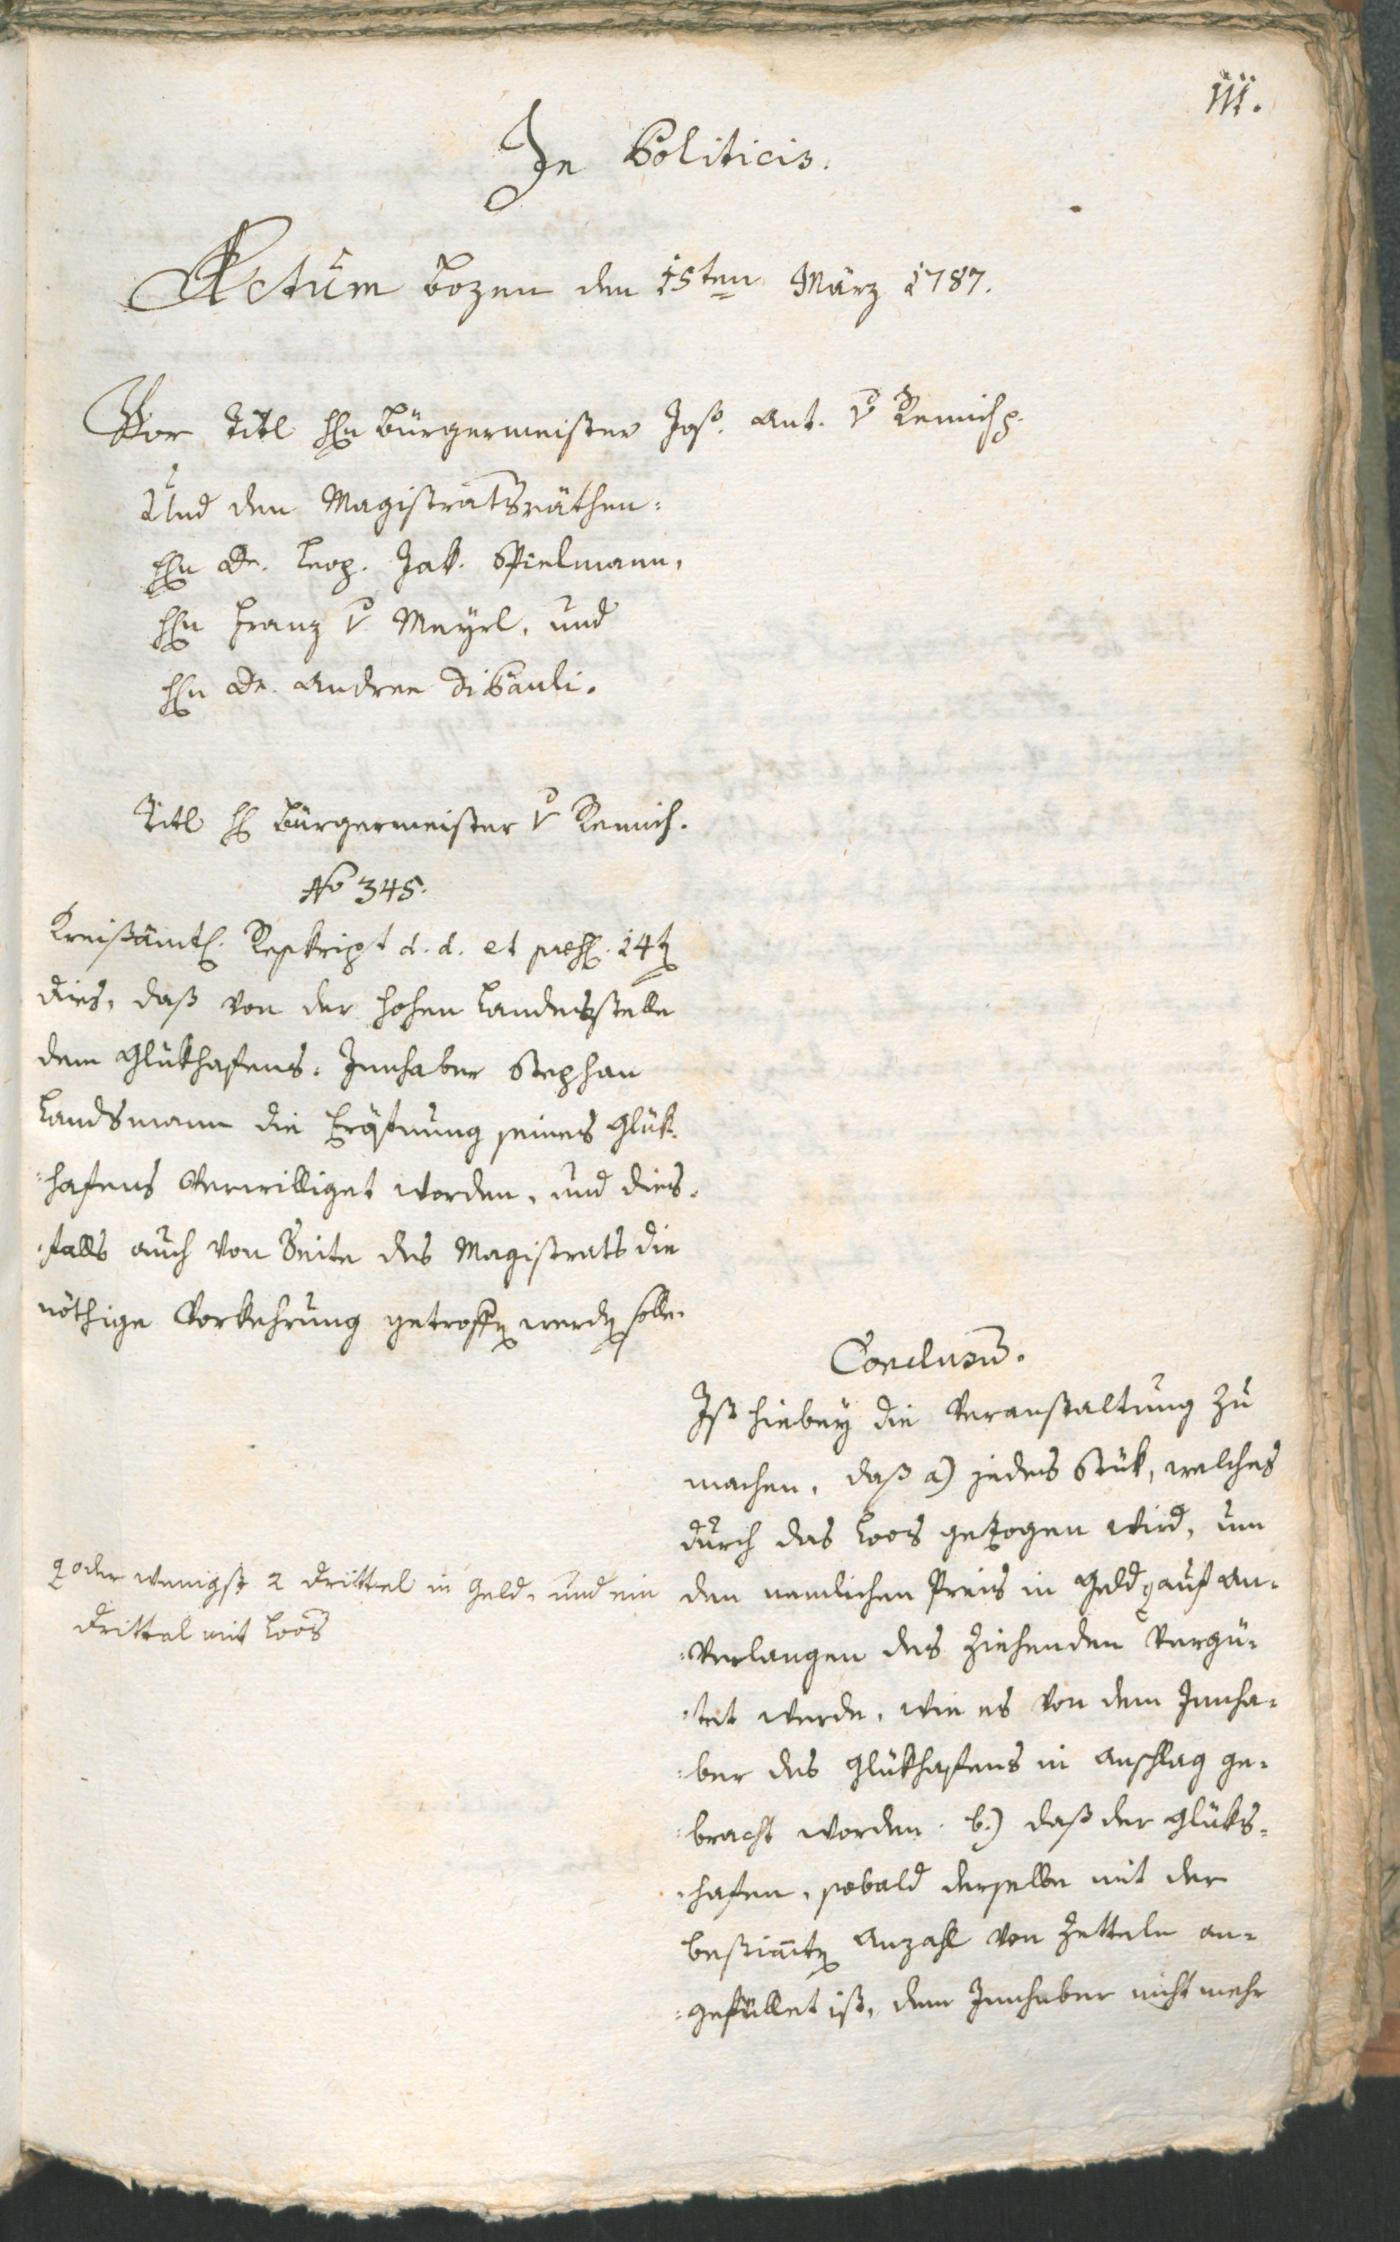 111.
In Politicis.
Actum Bozen den 15ten März 1787.
Vor Titl Hn Bürgermeister Jos. Ant. v Remich p.
Und den Magistratsräthen:
Hn Dr. Leop. Jak. Spielmann,
Hn Franz v Mayrl, und
Hn Dr. Andree Dipauli.
Titl H Bürgermeister v Remich.
No 345.
Kreißämtl. Reskript d. d. et präs. 14t
dies, daß von der hohen Landesstelle
dem Glükhafens-Innhaber Stephan
Landsmann die Eröfnung seines Glük-
hafens verwilliget worden, und dies-
falls auch von Seite des Magistrats die
nöthige Vorkehrung getroffen werden solle.
Conclusum.
Ist hiebey die Veranstaltung zu
machen, daß a) jedes Stük, welches
durch das Loos gezogen wird, um
den nemlichen Preis in Geld auf An-
oder wenigst 2 Drittel in Geld, und ein
Drittel mit Loos
verlangen des Ziehenden vergü-
tet werde, wie es von dem Innha-
ber des Glükhafens in Anschlag ge-
bracht worden. b.) daß der Glüks-
hafen, sobald derselbe mit der
bestimten Anzahl von Zetteln an-
gefüllet ist, dem Innhaber nicht mehr